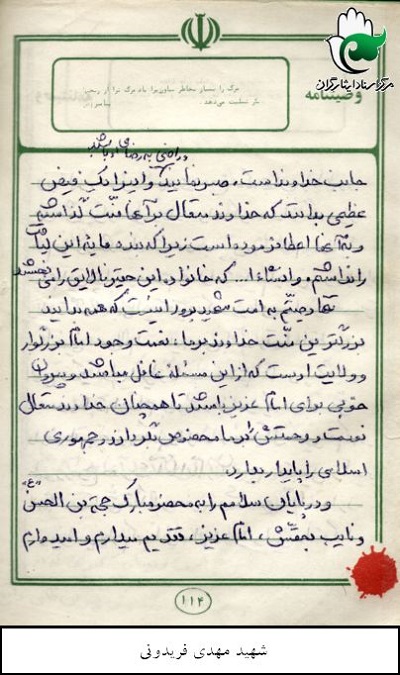 مرکز اسناد ایثارگران
وصیتنامه
مرگ را بسیار بخاطر بیاورید یاد مرگ ترا از رنجهای
تسلیت می‌دهد.
و راضی به رضای او باشند
جانب خداوند است، صبر نمائید و این را یک فیض
عظیمی بدانند که خداوند متعال بر آنها منّت گذاشته
و به آنها اعطا فرموده است زیرا که بنده مایه این لیاقت
را نداشتم، و انشاءا... که خانواده این حقیر نالایق را می بخشند
تنها وصیّتم به امت شهید پرور اینست که همه بدانند
بزرگترین منّت خداوند بر ما، نعمت وجود امام بزرگوار
و ولایت اوست که از این مسئله غافل مباشند و پیروان
خوبی برای امام عزیز باشند تا همچنان خداوند متعال
نعمت و رحمتش را بر ما محفوظ نگردارد و جمهوری
اسلامی را پایدار بدارد.
و در پایان سلامم را به محضر مبارک حجة بن الحسن (عج)
و نایب بحقّش، امام عزیز، تقدیم میدارم و امیدوارم
۱۱۴
شهید مهدی فریدونی